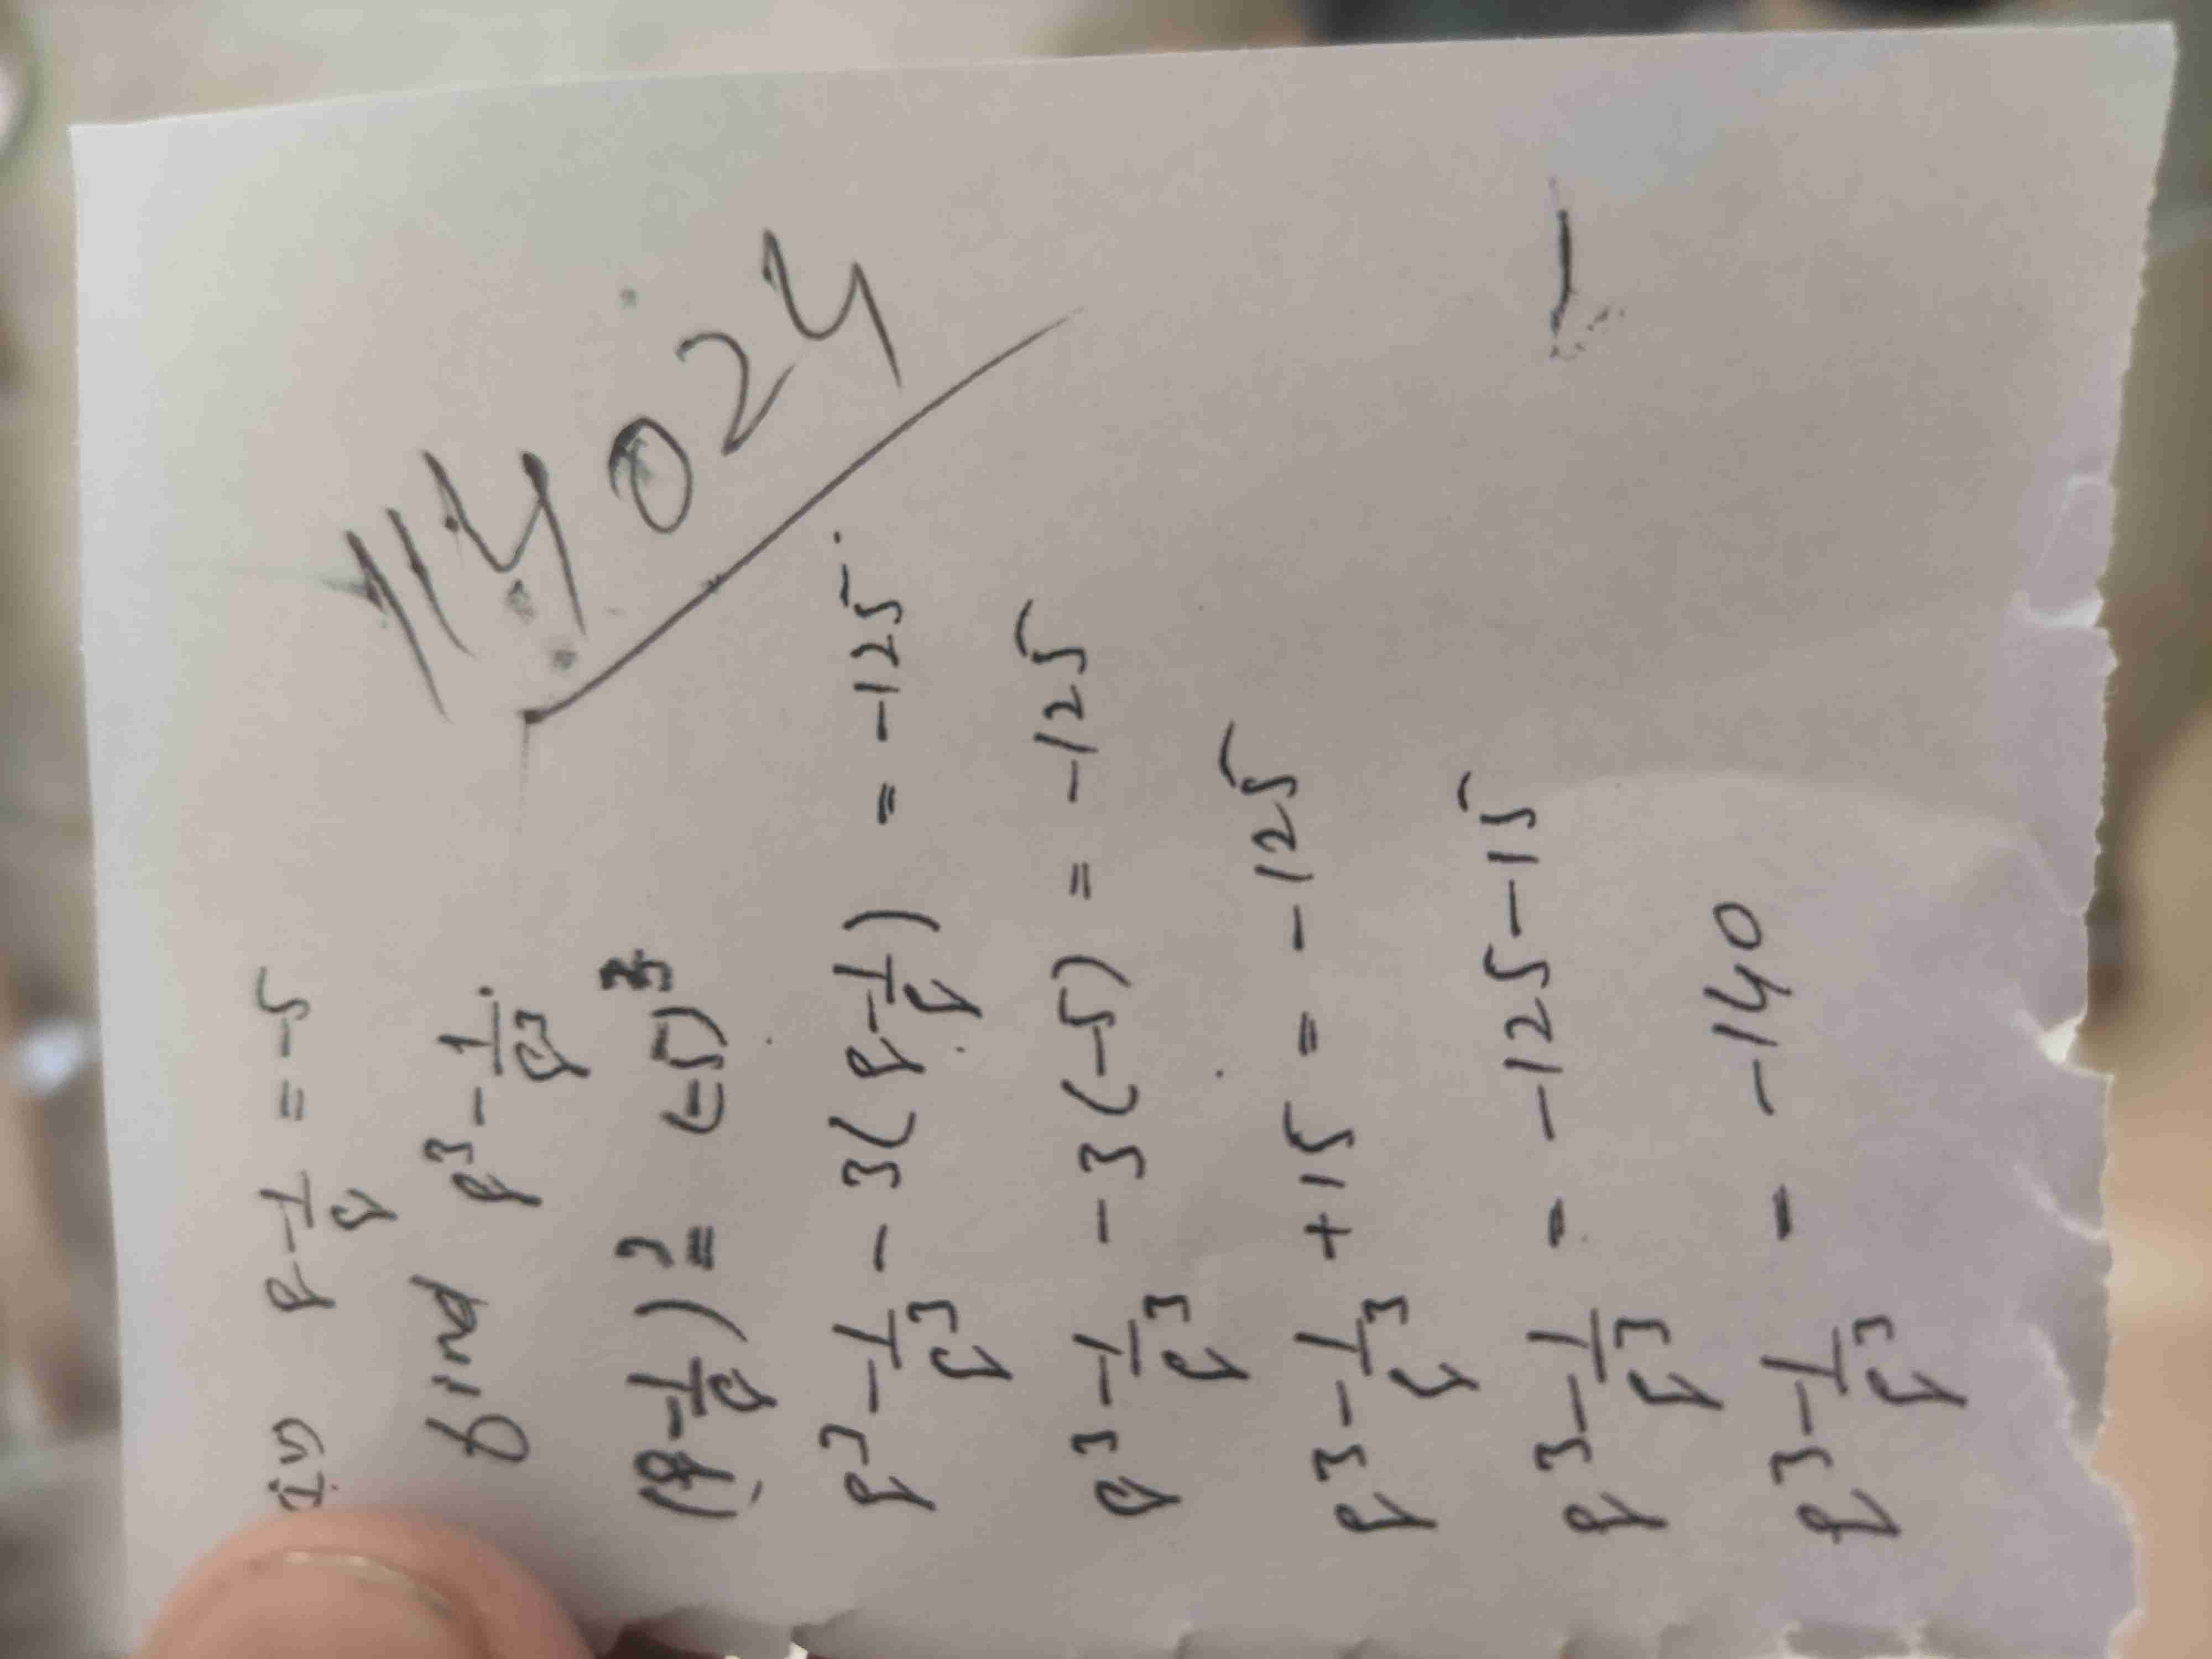 iv) P - 1/P = -5
find P³ - 1/P³
(P - 1/P)³ = (-5)³
P³ - 1/P³ - 3(P - 1/P) = -125
P³ - 1/P³ - 3(-5) = -125
P³ - 1/P³ + 15 = -125
P³ - 1/P³ = -125 - 15
P³ - 1/P³ = -140
114024